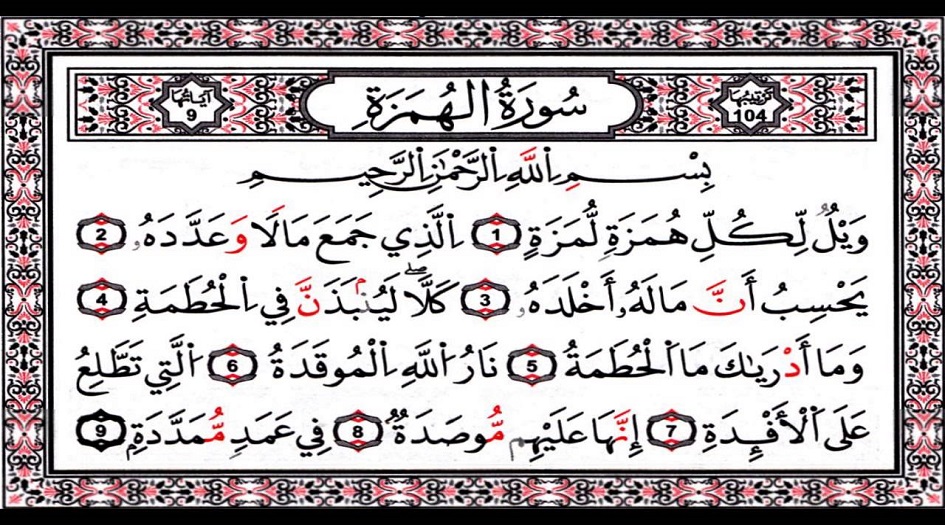 ترتيبها 104
سُورَةُ الْهُمَزَةِ
آياتها 9
بِسْمِ اِللَّهِ اِلرَّحْمَٰنِ اِلرَّحِيمِ
وَيْلٌ لِّكُلِّ هُمَزَةٍ لُّمَزَةٍ 1 اِلَّذِي جَمَعَ مَالًا وَعَدَّدَهُۥ 2
يَحْسِبُ أَنَّ مَالَهُۥ أَخْلَدَهُۥ 3 كَلَّا ۖ لَيُنۢبَذَنَّ فِي اِلْحُطَمَةِ 4
وَمَا أَدْرَيٰكَ مَا اَلْحُطَمَةُ 5 نَارُ اُللَّهِ اِلْمُوقَدَةُ 6 اَلَّتِي تَطَّلِعُ
عَلَى اَلْأَفْـِٕدَةِ 7 إِنَّهَا عَلَيْهِم مُّوصَدَةٌ 8 فِي عَمَدٍ مُّمَدَّدَةٍۭ 9